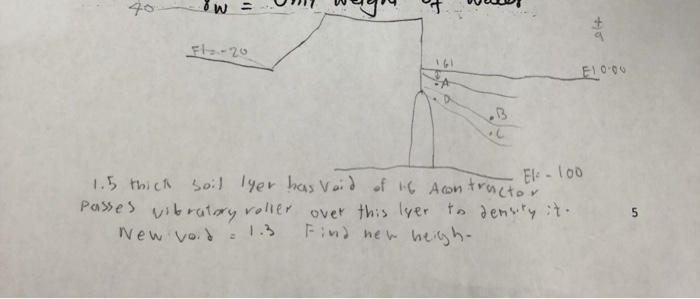 40 γw = Unit weight of water
El=-20
El 0.00
A
D
B
C
El=-100
1.5 thick soil lyer has void of 1.6 A contractor
Passes vibratory roller over this lyer to density it.
5
New void = 1.3 Find new heigh-